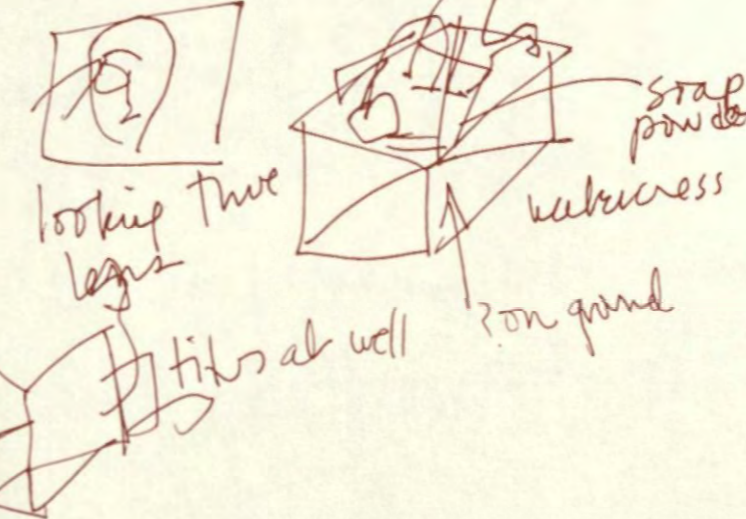 looking thro
legs
soap
powder
watercress
? on ground
at well